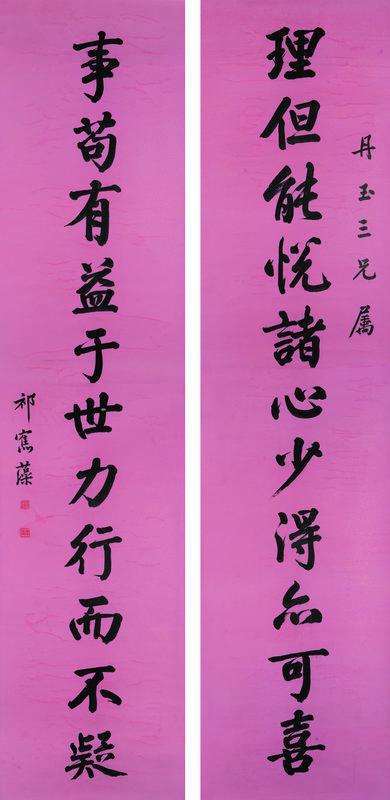 丹玉三兄属
理但能悦諸心少得亦可喜
事苟有益于世力行而不疑
祁寯藻